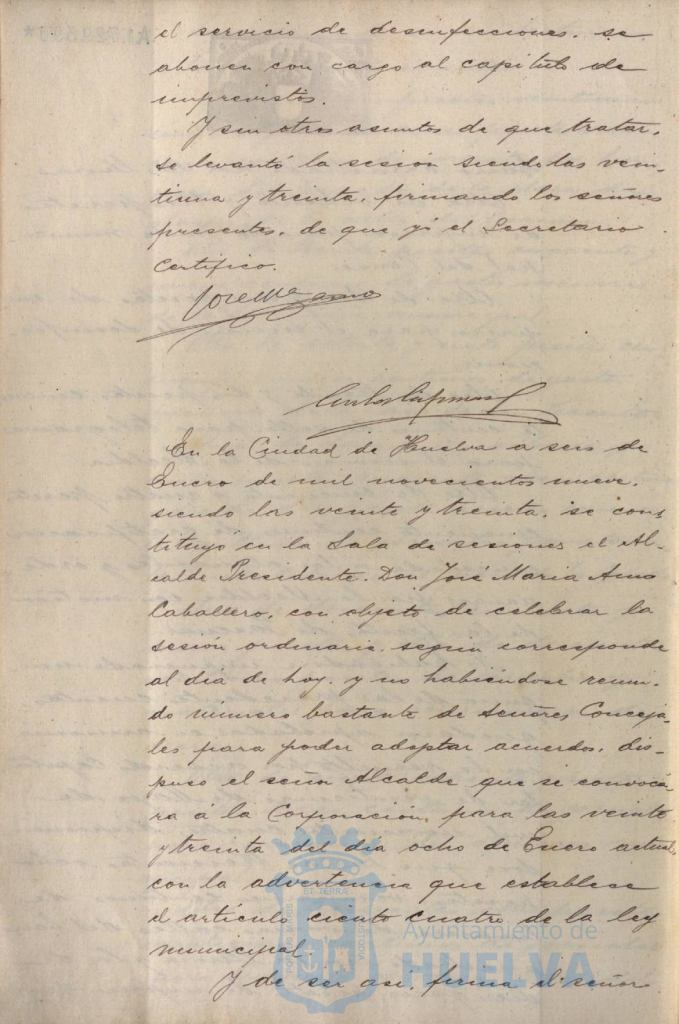 el servicio de desinfecciones, se
abonen con cargo al capítulo de
imprevistos.
Y sin otros asuntos de que tratar,
se levantó la sesión siendo las vein-
tiuna y treinta, firmando los señores
presentes, de que yo el Secretario
certifico.
En la Ciudad de Huelva a seis de
Enero de mil novecientos nueve,
siendo las veinte y treinta, se cons-
tituyó en la Sala de sesiones el Al-
calde Presidente, Don José Maria
Caballero, con objeto de celebrar la
sesión ordinaria, según corresponde
al día de hoy, y no habiéndose reuni-
do número bastante de señores Conceja-
les para poder adoptar acuerdos, dis-
puso el señor Alcalde que se convocá-
ra á la Corporación, para las veinte
y treinta del día ocho de Enero actual,
con la advertencia que establese
el artículo ciento cuatro de la ley
municipal.
Y de ser así, firma el señor
Ayuntamiento de
HUELVA